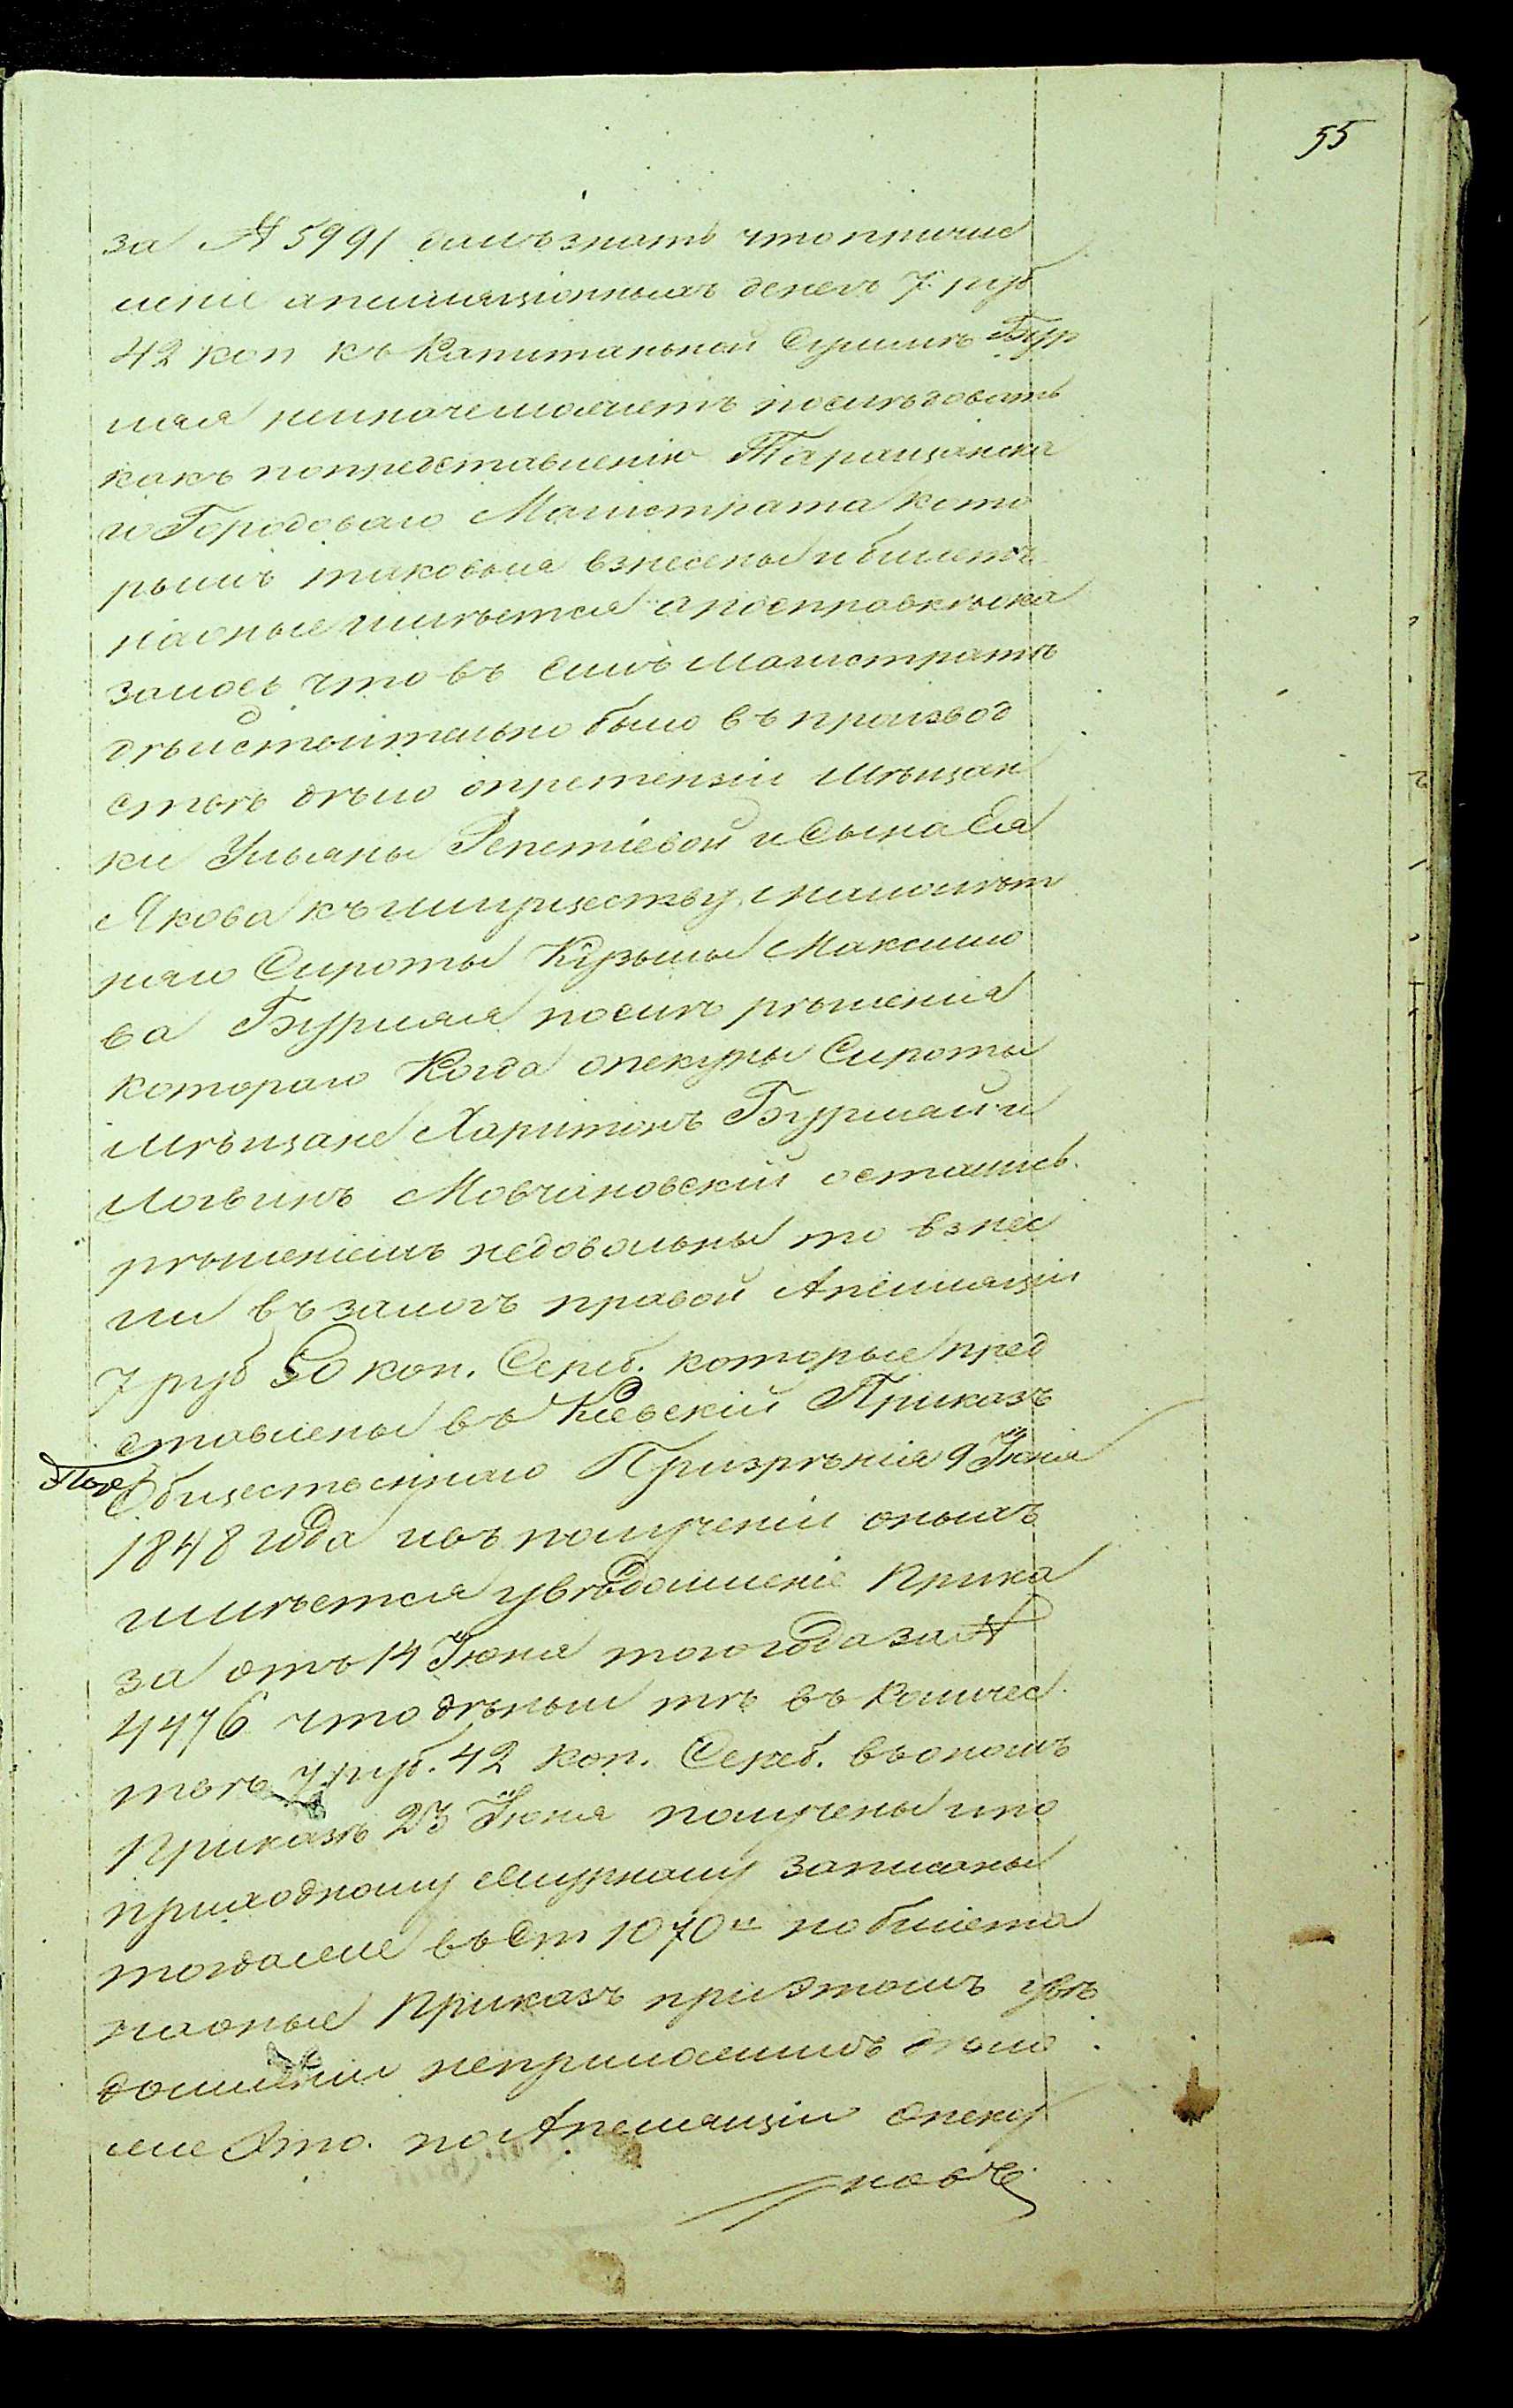 55
за № 5991 далъ знать что причис
леніе апеляціонныхъ денегъ 7 руб
42 коп къ Капитальной Суммѣ Бур
лая неиначе можетъ последовать
какъ попредставленію Таращанска
го Городоваго Магистрата кото
рымъ таковыя взнесены и билетъ
наоные имѣется а посправкѣ ока
залось что въ Семъ Магистратѣ
дѣйствительно было въ производ
ствѣ дѣло опретензіи мѣщан
ки Ульяны Репетіевой и Сына Ея
Якова къ имуществу малолѣт
няго Сироты Кузьмы Максимо
ва Бурлая послѣ рѣшенія
котораго Когда опекуны Сироты
мѣщане Харитонъ Бурлай и
Логвинъ Мовчановскій остались
рѣшеніемъ недовольны то взнес
ли въ залогъ правой Апеляціи
7 руб 50 коп. Сереб. которые пред
ставлены въ Кіевскій Приказъ
Общественнаго Призрѣнія 9 Іюня
1848 года и въ полученіи оныхъ
имѣется увѣдомленіе Прика
за отъ 14 Іюня того года за №
4476 что деньги тѣ въ Количес
твѣ 7 руб. 42 коп. Сереб. въ ономъ
Приказѣ 23 Іюня получены и по
приходному журналу записаны
тогда же въ Ст 1070 но билета
наоные Приказъ при этомъ увѣ
домленіи неприложилъ дѣло
же это по Апеляціи опеку
новъ